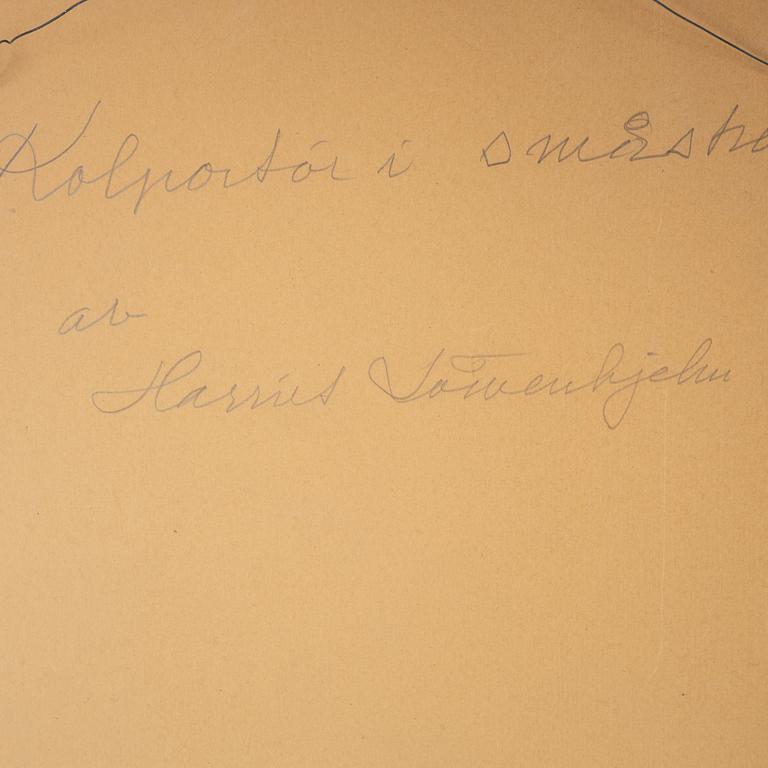 Kolportör i småstr
av
Harriet Löwenhjelm